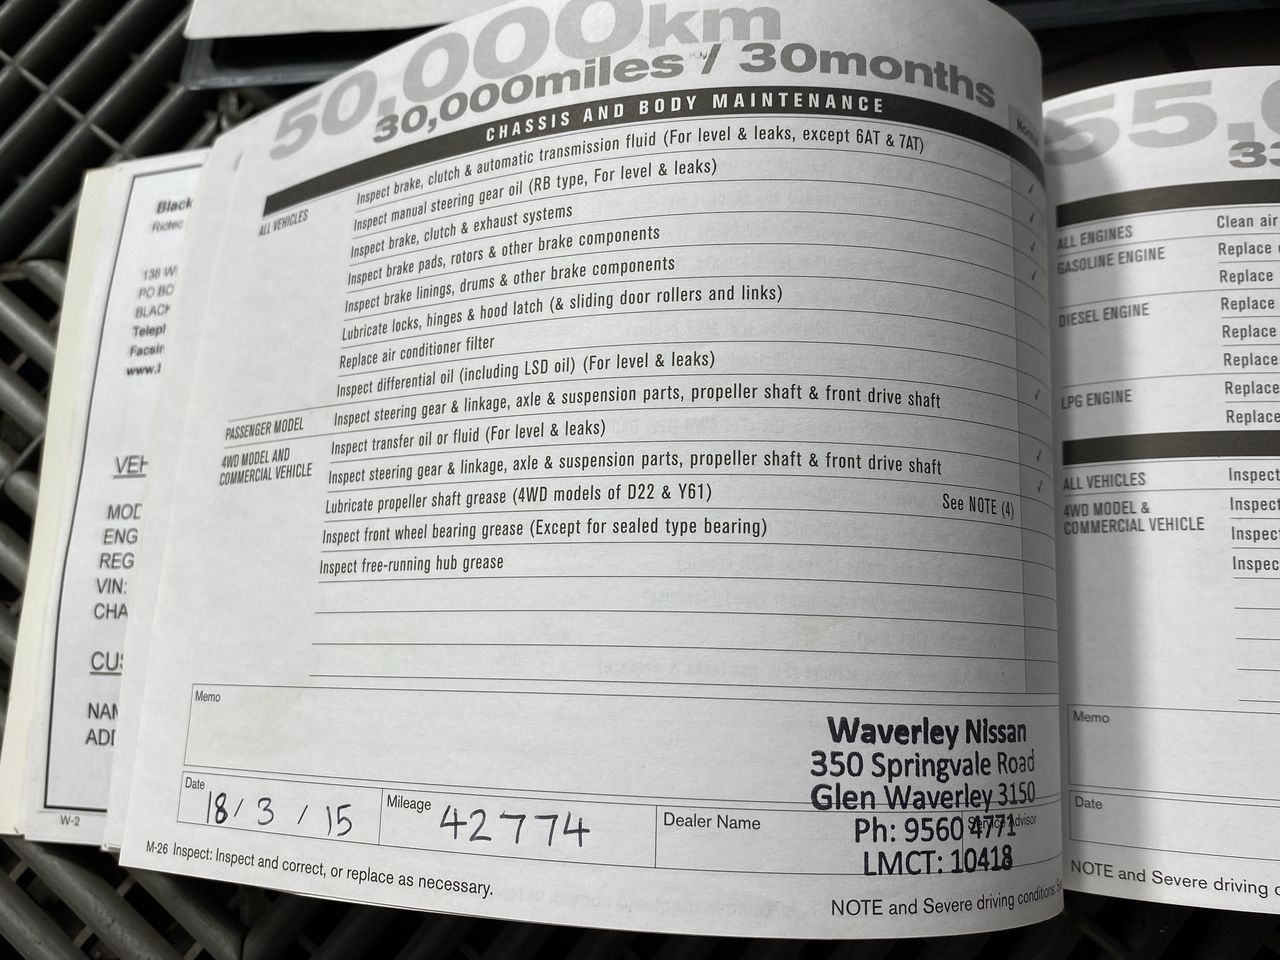 50,000km
30,000miles / 30months
CHASSIS AND BODY MAINTENANCE
ALL VEHICLES
Inspect brake, clutch & automatic transmission fluid (For level & leaks, except 6AT & 7AT)
Inspect manual steering gear oil (RB type, For level & leaks)
Inspect brake, clutch & exhaust systems
Inspect brake pads, rotors & other brake components
Inspect brake linings, drums & other brake components
Lubricate locks, hinges & hood latch (& sliding door rollers and links)
Replace air conditioner filter
Inspect differential oil (including LSD oil) (For level & leaks)
PASSENGER MODEL
Inspect steering gear & linkage, axle & suspension parts, propeller shaft & front drive shaft
4WD MODEL AND
COMMERCIAL VEHICLE
Inspect transfer oil or fluid (For level & leaks)
Inspect steering gear & linkage, axle & suspension parts, propeller shaft & front drive shaft
Lubricate propeller shaft grease (4WD models of D22 & Y61) See NOTE (4)
Inspect front wheel bearing grease (Except for sealed type bearing)
Inspect free-running hub grease
Memo
Waverley Nissan
350 Springvale Road
Glen Waverley 3150
Ph: 9560 4771
LMCT: 10418
Date 18/3/15
Mileage 42774
Dealer Name
Service Advisor
M-26 Inspect: Inspect and correct, or replace as necessary.
NOTE and Severe driving conditions
Black
138 W
PO BO
BLACK
Telep
Facsim
www.
VEH
MOD
ENG
REG
VIN:
CHA
CUS
NAM
ADD
W-2
55,
33
ALL ENGINES
Clean air
GASOLINE ENGINE
Replace
Replace
DIESEL ENGINE
Replace
Replace
Replace
LPG ENGINE
Replace
Replace
ALL VEHICLES
Inspect
4WD MODEL &
COMMERCIAL VEHICLE
Inspect
Inspect
Inspec
Memo
Date
NOTE and Severe driving